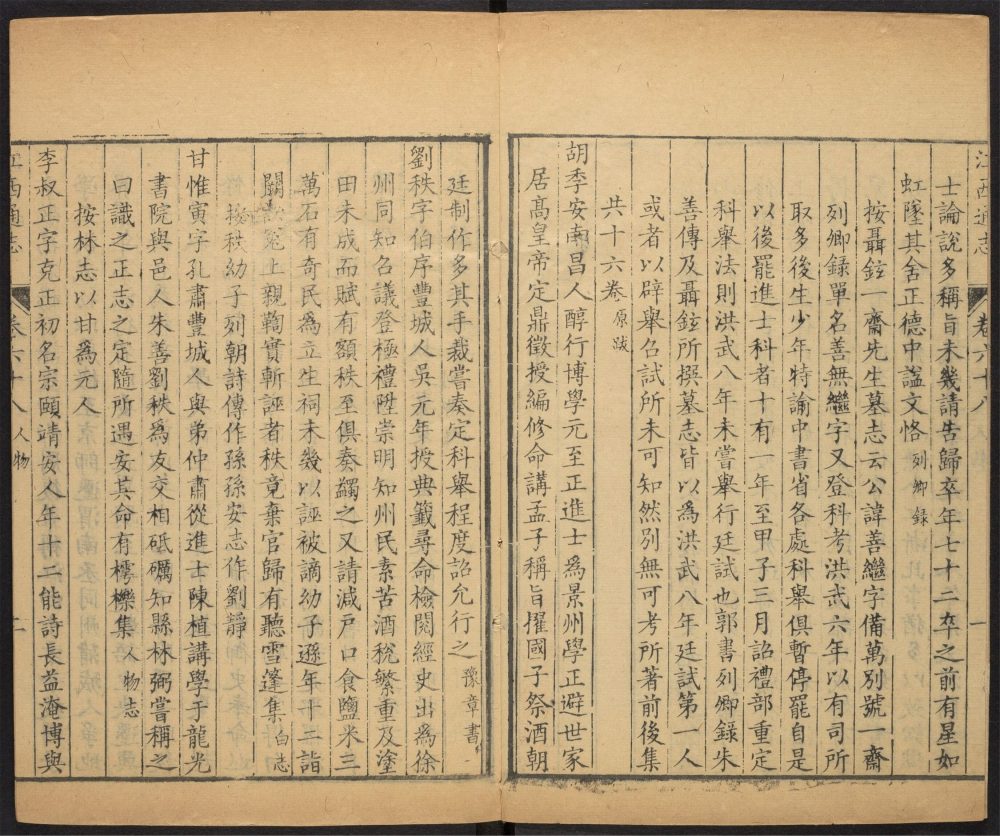 江西通志 卷六十八 一
士論說多稱旨未幾請告歸卒年七十二卒之前有星如
虹墜其舍正德中謚文恪列卿錄
按聶鉉一齋先生墓志云公諱善繼字備萬別號一齋
列卿錄單名善無繼字又登科考洪武六年以有司所
取多後生少年特諭中書省各處科舉俱暫停罷自是
以後罷進士科者十有一年至甲子三月詔禮部重定
科舉法則洪武八年未嘗舉行廷試也郭書列卿錄朱
善傳及聶鉉所撰墓志皆以為洪武八年廷試第一人
或者以辟舉召試所未可知然別無可考所著前後集
共十六卷原跋
胡季安南昌人醇行博學元至正進士為景州學正避世家
居高皇帝定鼎徵授編修命講孟子稱旨擢國子祭酒朝
廷制作多其手裁嘗奏定科舉程度詔允行之豫章書
劉秩字伯序豐城人吳元年授典籤尋命檢閱經史出為徐
州同知召議登極禮陞崇明知州民素苦酒稅繁重及塗
田未成而賦有額秩至俱奏蠲之又請減戶口食鹽米三
萬石有奇民為立生祠未幾以誣被謫幼子遜年十二詣
闕訟冤上親鞫實斬誣者秩竟棄官歸有聽雪篷集白志
按秩幼子列朝詩傳作孫孫安志作劉靜
甘惟寅字孔肅豐城人與弟仲肅從進士陳植講學于龍光
書院與邑人朱善劉秩為友交相砥礪知縣林弼嘗稱之
曰識之正志之定隨所遇安其命有樗櫟集人物志
按林志以甘為元人
李叔正字克正初名宗頤靖安人年十二能詩長益淹博與
江西通志 卷六十八 人物 二